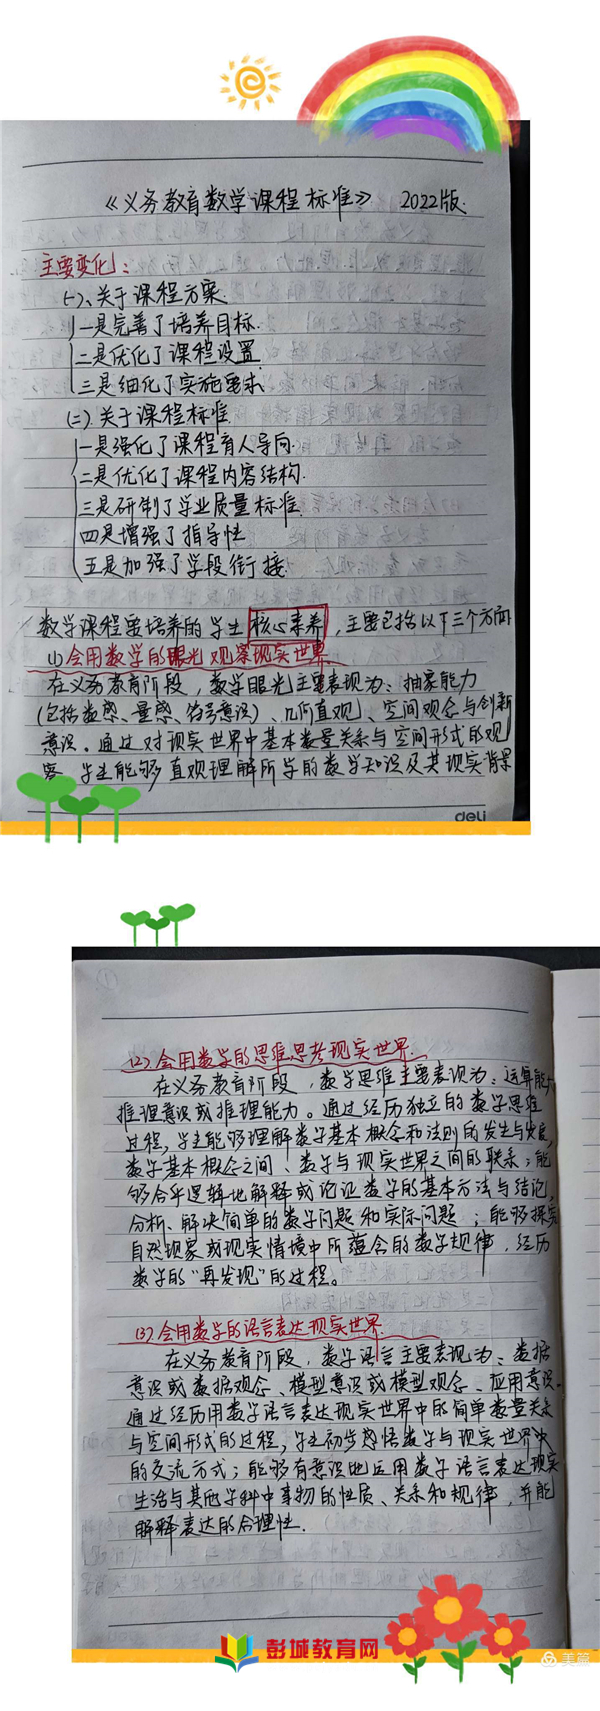 《义务教育数学课程标准》 2022版.
主要变化:
(一)、关于课程方案.
一是完善了培养目标.
二是优化了课程设置
三是细化了实施要求.
(二)、关于课程标准.
一是强化了课程育人导向.
二是优化了课程内容结构.
三是研制了学业质量标准.
四是增强了指导性
五是加强了学段衔接.
数学课程要培养的学生核心素养,主要包括以下三个方面
(1)会用数学的眼光观察现实世界
在义务教育阶段,数学眼光主要表现为:抽象能力
(包括数感、量感、符号意识)、几何直观、空间观念与创新
意识。通过对现实世界中基本数量关系与空间形式的观
察,学生能够直观理解所学的数学知识及其现实背景
deli
(2)会用数学的思维思考现实世界.
在义务教育阶段,数学思维主要表现为:运算能力
推理意识或推理能力。通过经历独立的数学思维
过程,学生能够理解数学基本概念和法则的发生与发展,
数学基本概念之间、数学与现实世界之间的联系;能
够合乎逻辑地解释或论证数学的基本方法与结论,
分析、解决简单的数学问题和实际问题;能够探究
自然现象或现实情境中所蕴含的数学规律,经历
数学的"再发现"的过程。
(3)会用数学的语言表达现实世界.
在义务教育阶段,数学语言主要表现为:数据
意识或数据观念、模型意识或模型观念、应用意识.
通过经历用数学语言表达现实世界中的简单数量关系
与空间形式的过程,学生初步感悟数学与现实世界
的交流方式;能够有意识地运用数学语言表达现实
生活与其他学科中事物的性质、关系和规律,并能
解释表达的合理性.
彭城教育网
美篇